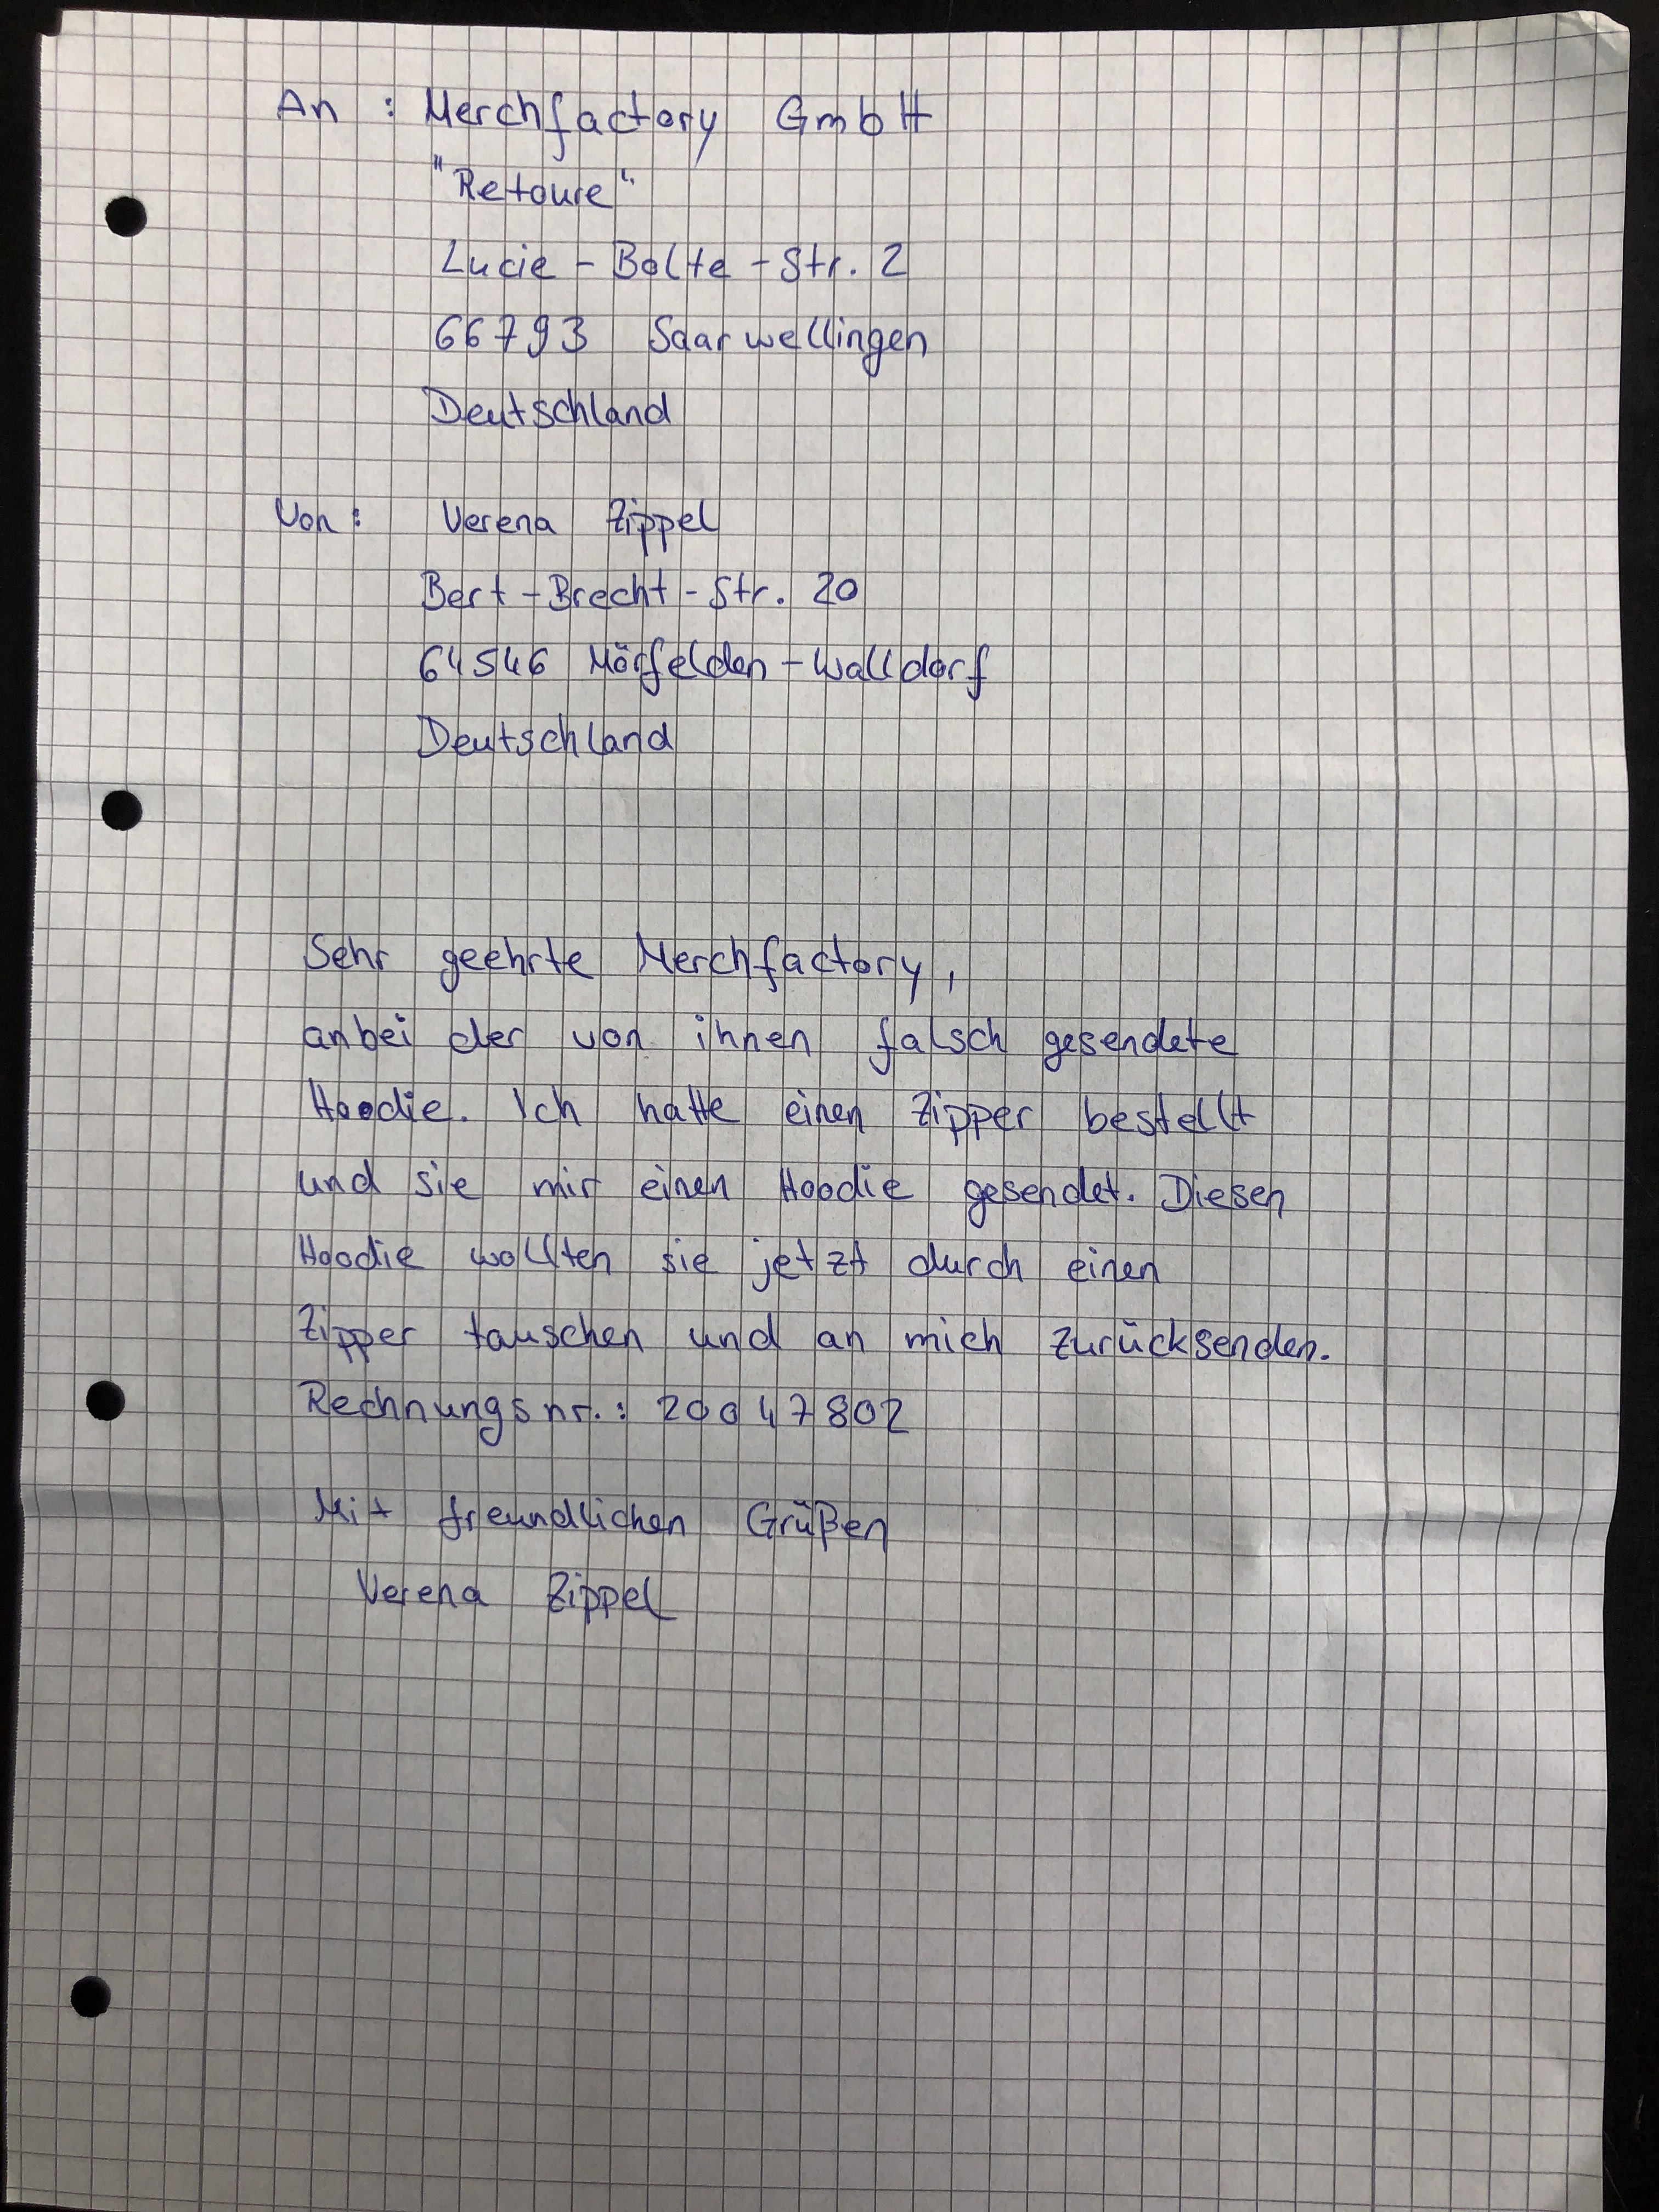 An : Merchfactory GmbH
"Retoure"
Lucie - Bolte - Str. 2
66793 Saarwellingen
Deutschland
Von : Verena Zippel
Bert - Brecht - Str. 20
64546 Mörfelden - Walldorf
Deutschland
Sehr geehrte Merchfactory,
anbei der von ihnen falsch gesendete
Hoodie. Ich hatte einen Zipper bestellt
und sie mir einen Hoodie gesendet. Diesen
Hoodie wollten sie jetzt durch einen
Zipper tauschen und an mich zurücksenden.
Rechnungsnr. : 20047802
Mit freundlichen Grüßen
Verena Zippel